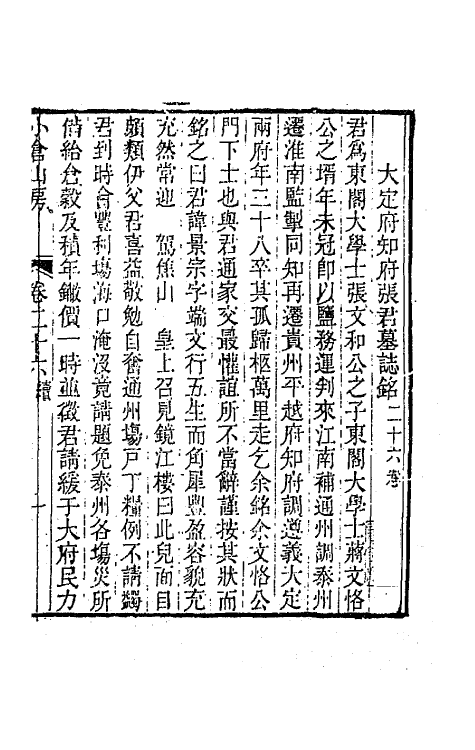 大定府知府張君墓誌銘 二十六卷
君爲東閣大學士張文和公之子東閣大學士蔣文恪
公之壻年未冠卽以鹽務運判來江南補通州調泰州
遷淮南監掣同知再遷貴州平越府知府調遵義大定
兩府年三十八卒其孤歸柩萬里走乞余銘余文恪公
門下士也與君通家交最懽誼所不當辭謹按其狀而
銘之曰君諱景宗字端文行五生而角犀豐盈容貌充
充然常迎 駕焦山 皇上召見鏡江樓曰此兒面目
頗類伊父君喜益敬勉自奮通州塲戶丁糧例不請蠲
君到時會豐利塲海口淹沒竟請題免泰州各塲災所
借給倉穀及積年鏾價一時並徵君請緩于大府民力
小倉山房 卷二十六 續